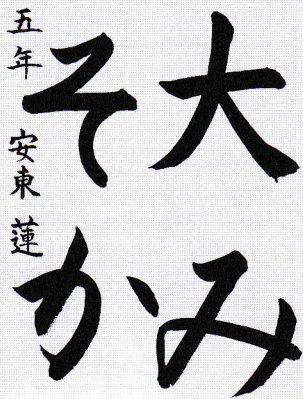 大み
そか
五年 安東 蓮